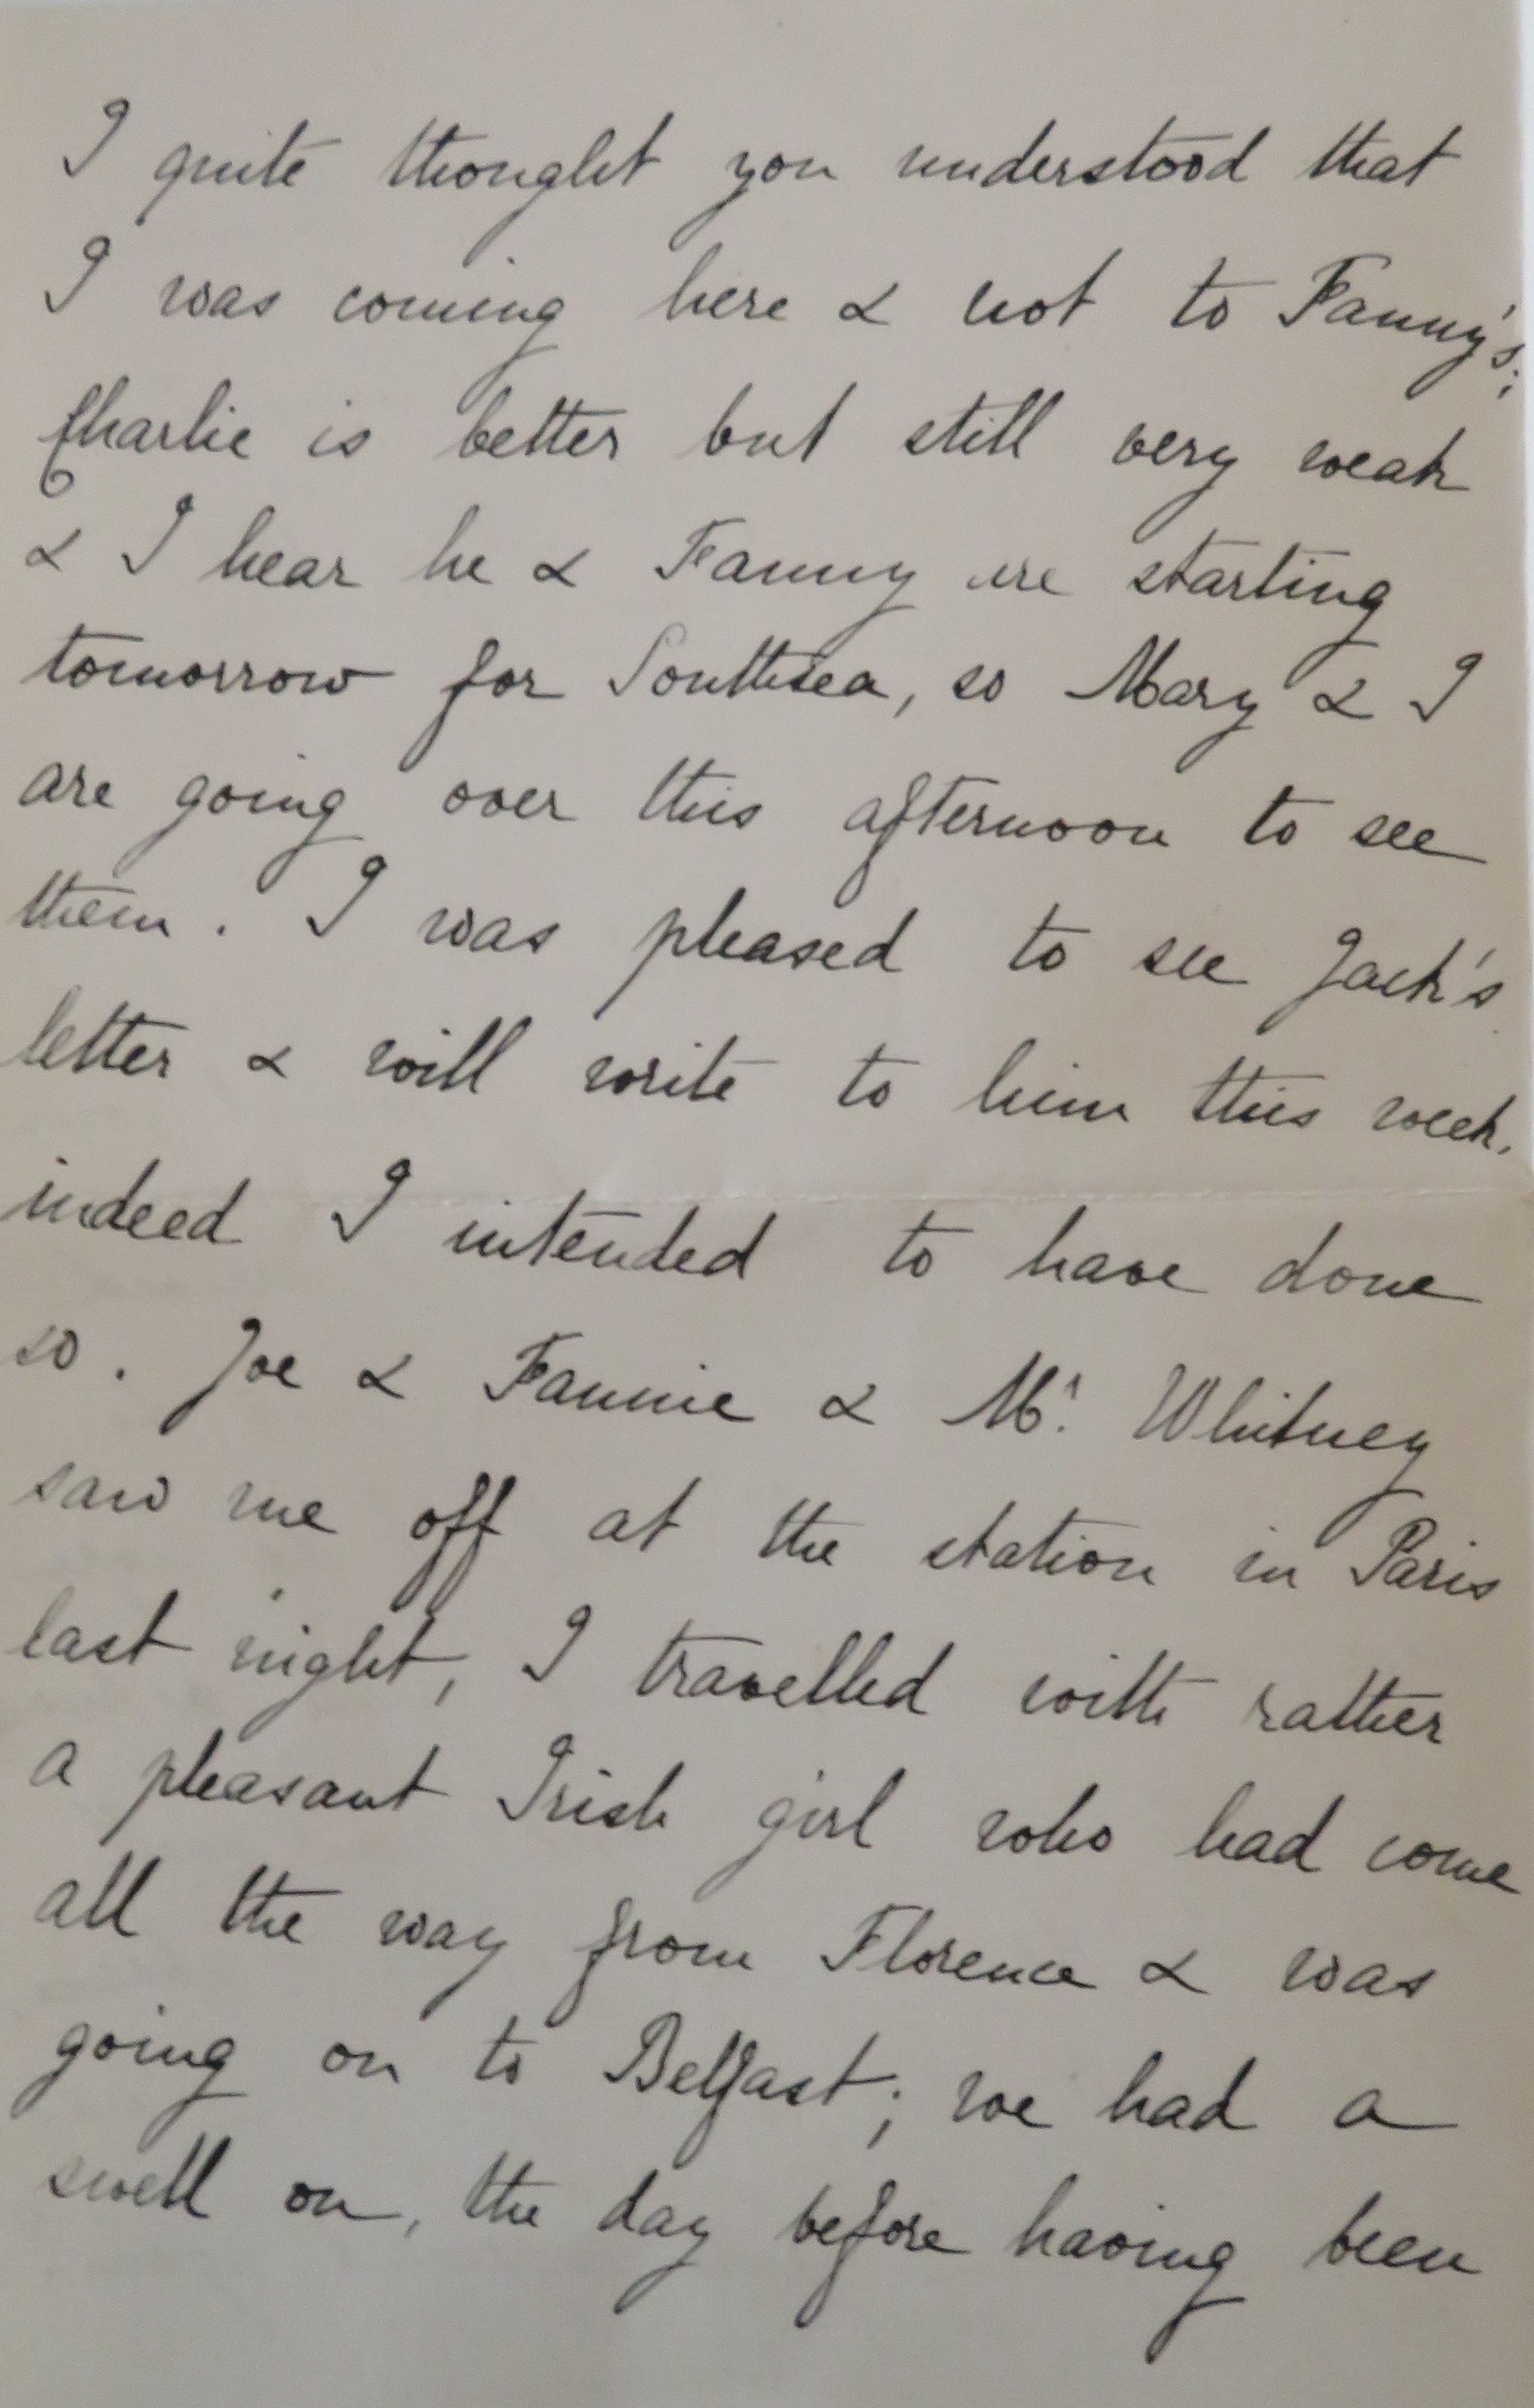 I quite thought you understood that
I was coming here & not to Fanny's;
Charlie is better but still very weak
& I hear he & Fanny are starting
tomorrow for Southsea, so Mary & I
are going over this afternoon to see
them. I was pleased to see Jack's
letter & will write to him this week,
indeed I intended to have done
so. Joe & Fannie & Mr. Whitney
saw me off at the station in Paris
last night, I travelled with rather
a pleasant Irish girl who had come
all the way from Florence & was
going on to Belfast; we had a
swell on, the day before having been